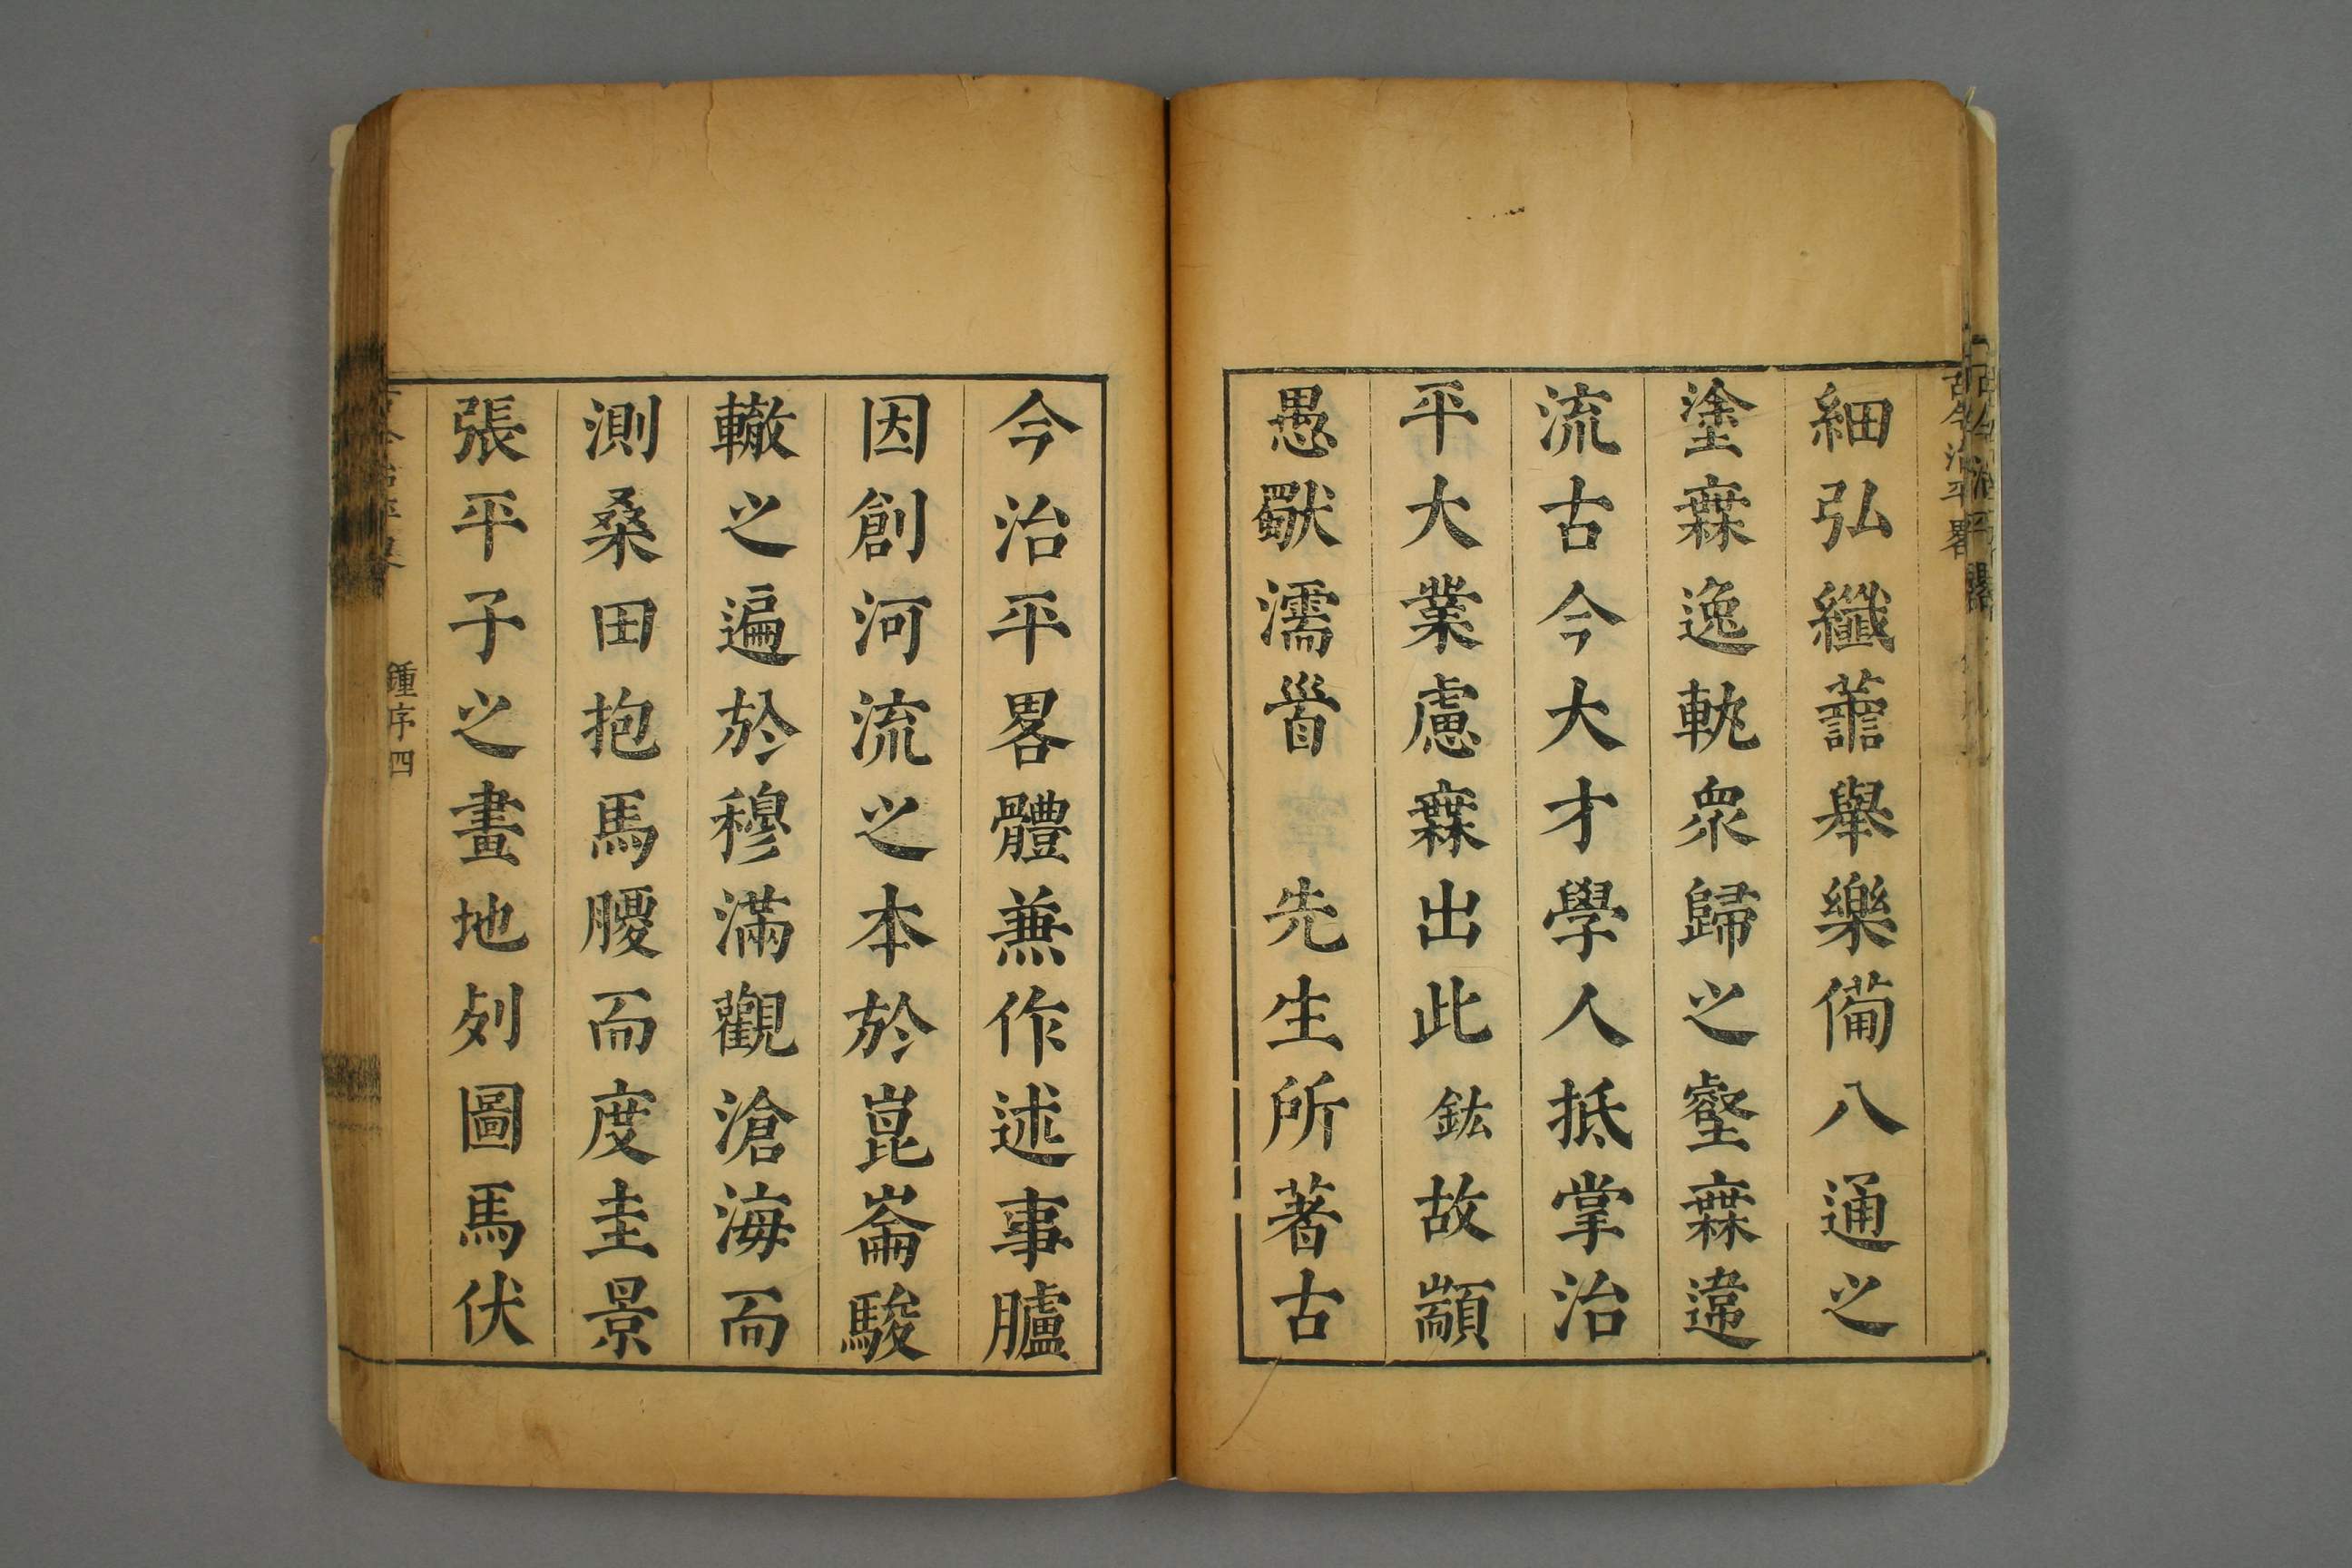 細弘纖薝舉樂備八通之
塗霖逸軌衆歸之壑霖違
流古今大才學人抵掌治
平大業慮霖出此鈜故顓
愚歜濡首 先生所著古
今治平畧體兼作述事臚
因創河流之本於崑崙駿
轍之遍於穆滿觀滄海而
測桑田抱馬腰而度圭景
張平子之畫地列圖馬伏
古今治平畧
鍾序四